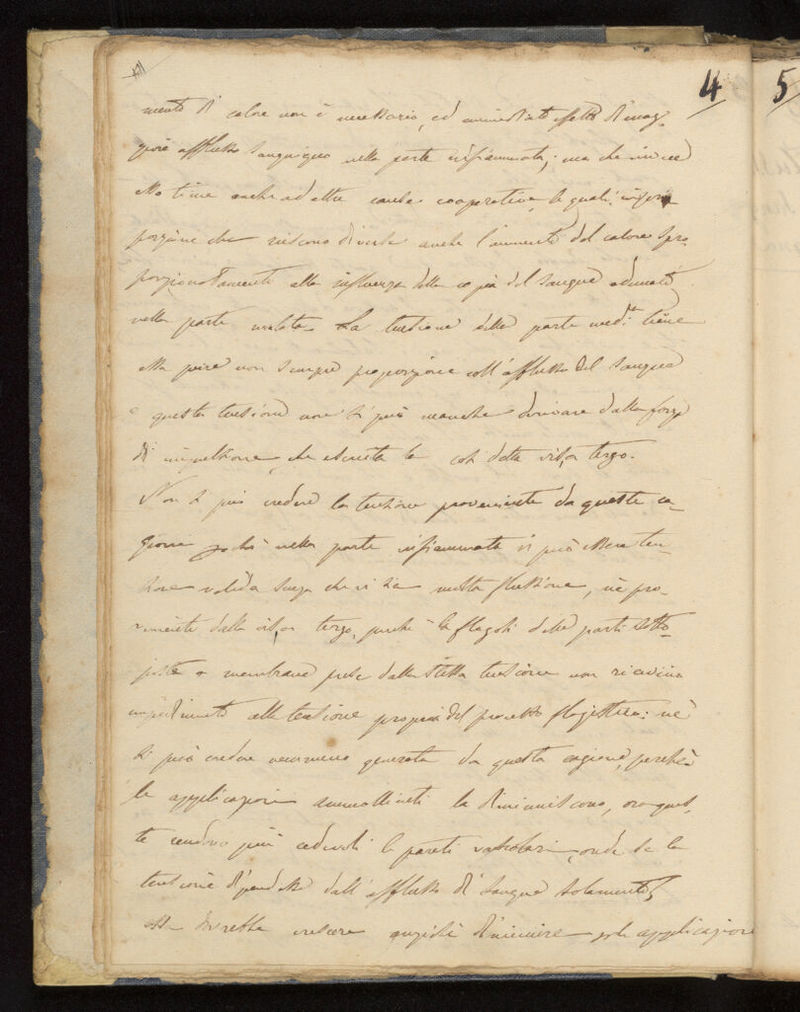 4
5
mento di calore non è necessario, ed immediato effetto di mag-
giore afflusso sanguigno nella parte infiammata; ma che invece
esso tiene anche ad altre cause cooperative, le quali
porzione che riescono diverse anche l'aumento del calore spro-
porzionatamente alla influenza della copia del sangue adunato
nella parte malata. La tensione della parte med.ª tiene
essa pure non sempre proporzione coll'afflusso del sangue
e questa tensione non si può neanche derivare dalla forza
di impulsione che esercita la così detta vis a tergo.
Non si può credere la tensione proveniente da queste ca-
gione nella parte infiammata vi può essere ten-
sione valida senza che vi sia molta flussione, nè pro-
veniente dalla vis a tergo, perchè le flogosi delle parti sotto-
poste a membrane prese dalla stessa tensione non ricevino
impedimento alla tensione propria del processo flogistico: nè
si può credere nemmeno generata da questa cagione, perchè
le applicazioni ammollienti la diminuiscono, ora ques-
te rendono più cedevoli le pareti vascolari, onde se la
tensione dipendesse dall'afflusso di sangue solamente,
essa dovrebbe crescere anzichè diminuire per le applicazioni